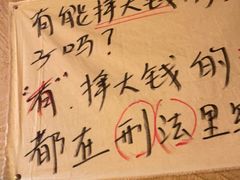 有能挣大钱
子吗？
"有"，挣大钱的
都在刑法里